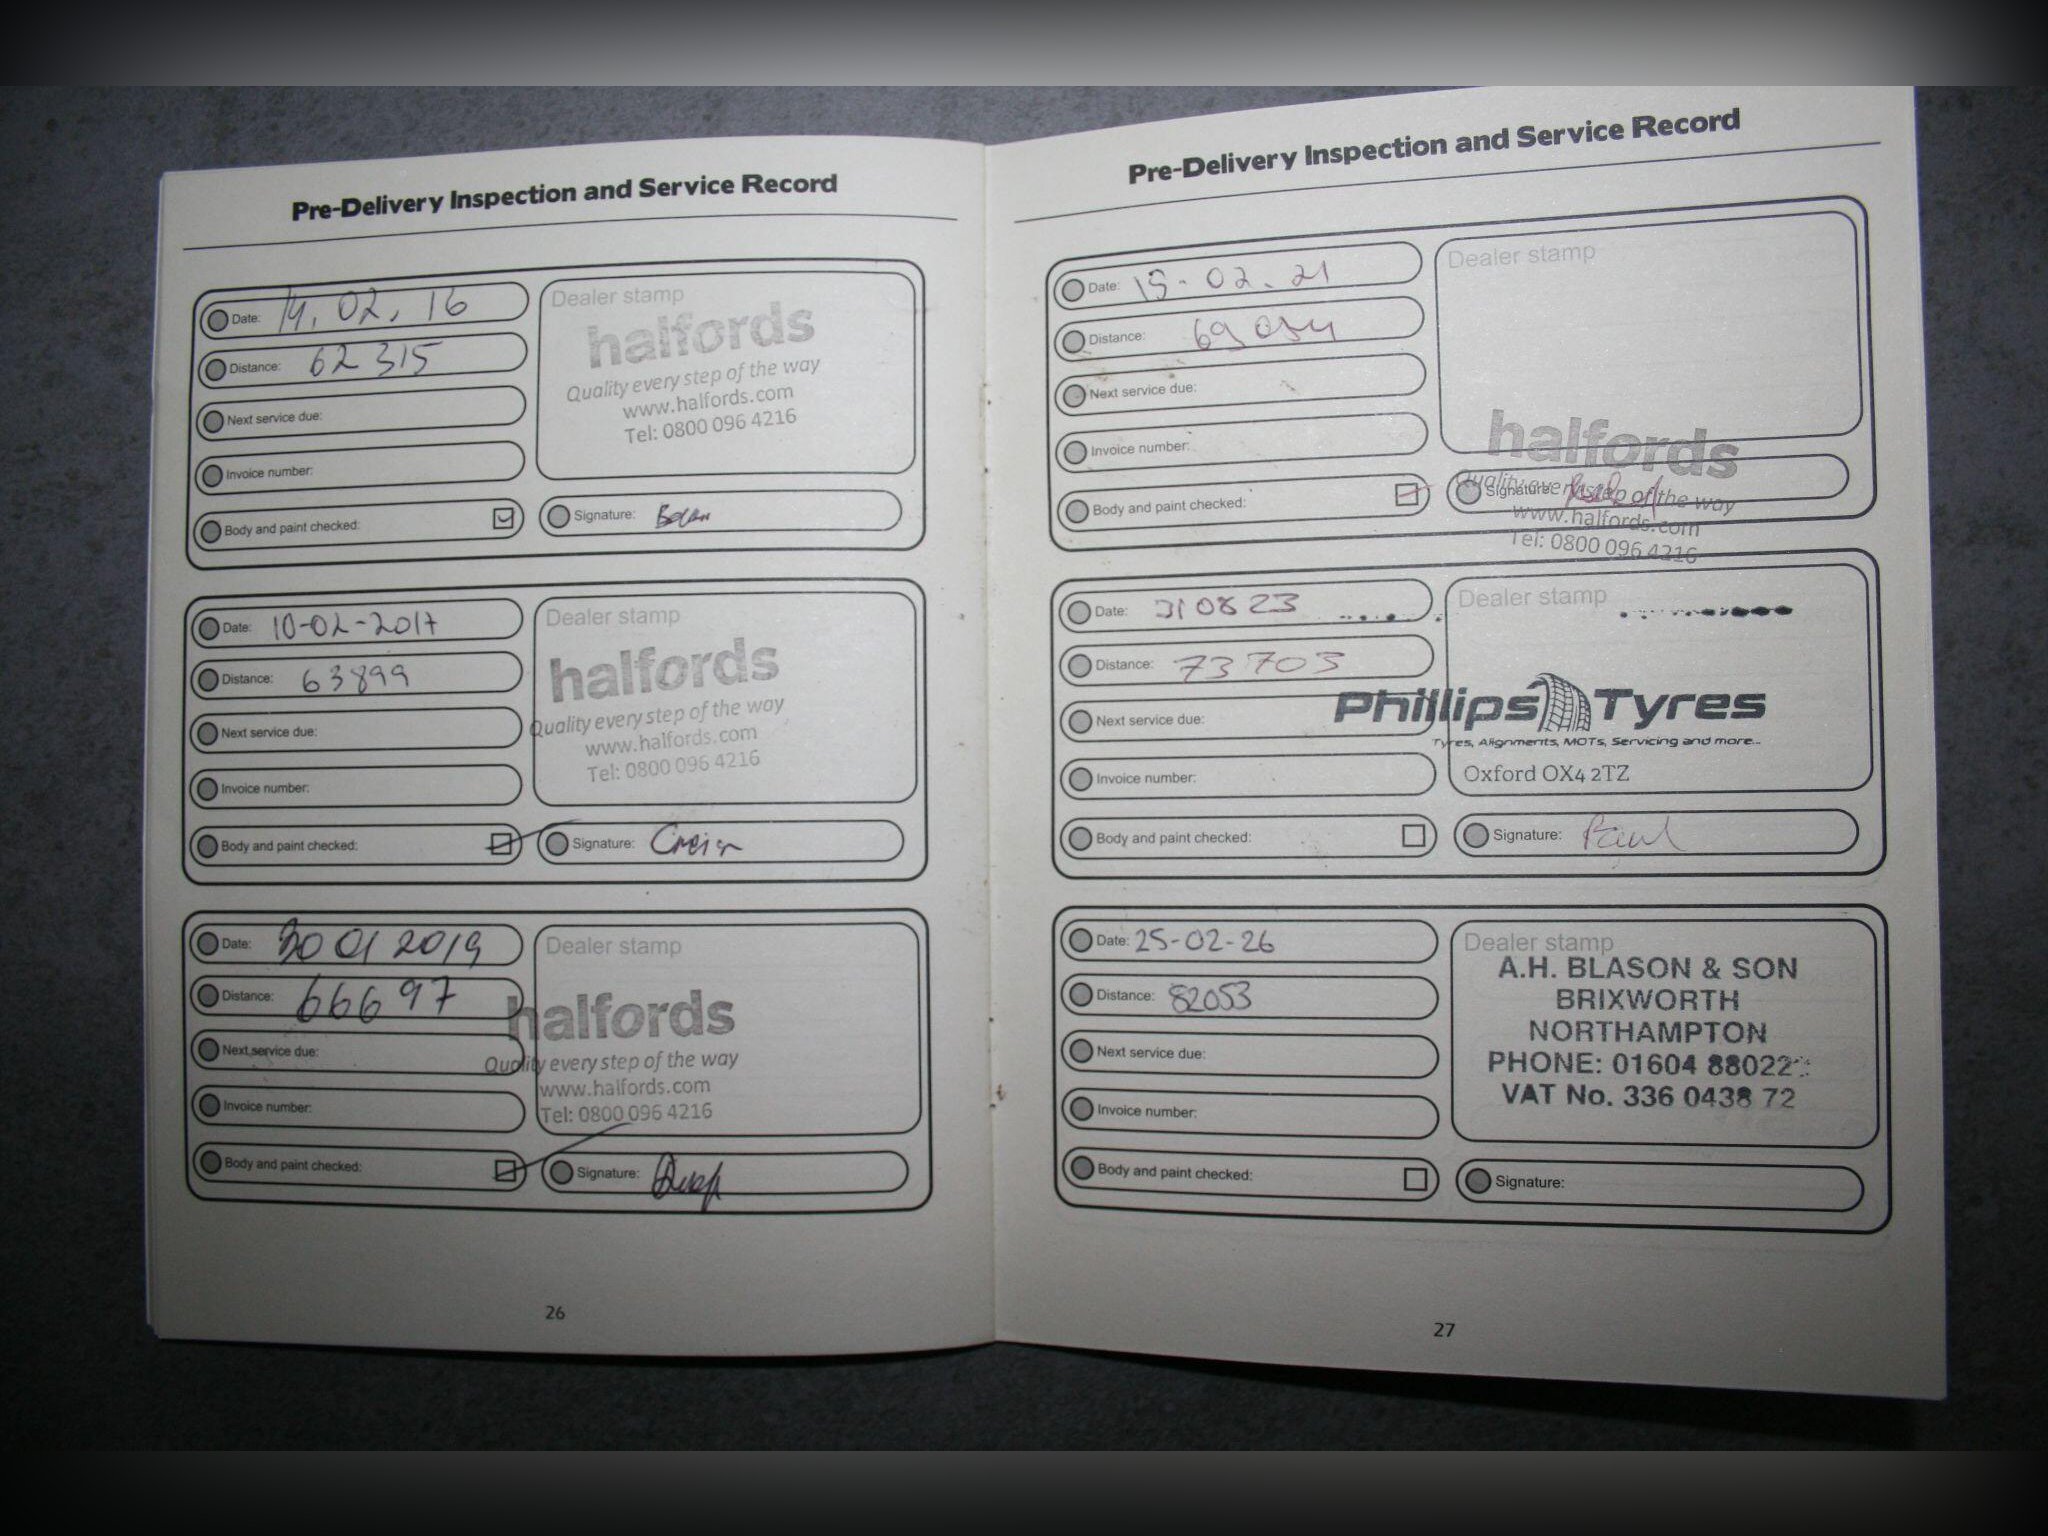 Pre-Delivery Inspection and Service Record
Date: 14.02.16
Distance: 62315
Next service due:
Invoice number:
Body and paint checked:
Dealer stamp
halfords
Quality every step of the way
www.halfords.com
Tel: 0800 096 4216
Signature:
Date: 10-02-2017
Distance: 63899
Next service due:
Invoice number:
Body and paint checked:
Dealer stamp
halfords
Quality every step of the way
www.halfords.com
Tel: 0800 096 4216
Signature: Craig
Date: 30 01 2019
Distance: 66697
Next service due:
Invoice number:
Body and paint checked:
Dealer stamp
halfords
Quality every step of the way
www.halfords.com
Tel: 0800 096 4216
Signature:
26
Pre-Delivery Inspection and Service Record
Date: 15-02.21
Distance: 69054
Next service due:
Invoice number:
Body and paint checked:
Dealer stamp
halfords
Quality every step of the way
www.halfords.com
Tel: 0800 096 4216
Signature:
Date: 310823
Distance: 73703
Next service due:
Invoice number:
Body and paint checked:
Dealer stamp
Phillips Tyres
Tyres, Alignments, MOTs, Servicing and more...
Oxford OX4 2TZ
Signature: Paul
Date: 25-02-26
Distance: 82053
Next service due:
Invoice number:
Body and paint checked:
Dealer stamp
A.H. BLASON & SON
BRIXWORTH
NORTHAMPTON
PHONE: 01604
VAT No. 336 0438 72
Signature:
27